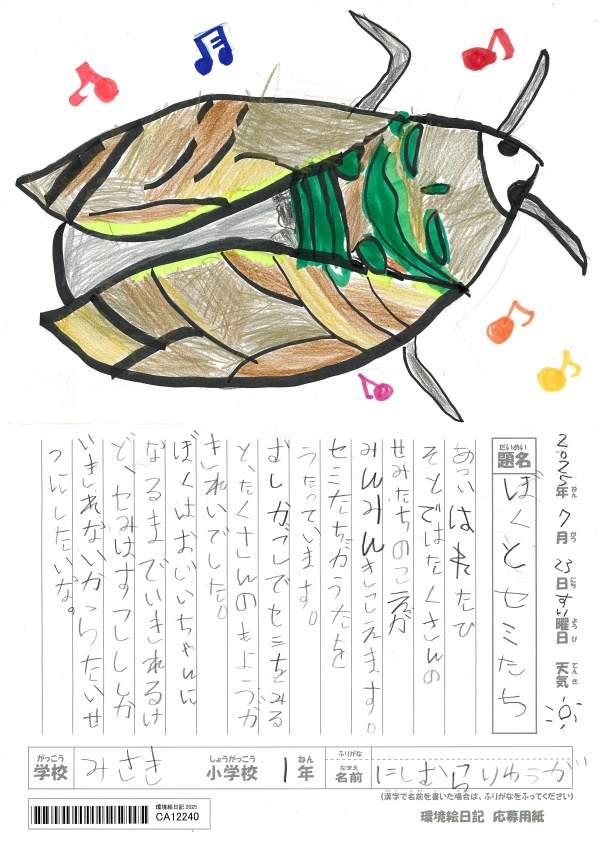 2025年ねん 7月がつ 23日にち すい曜日ようび 天気てんき
だいめい
題名
ぼくとセミたち
あつい
そとではたくさんの
せみたちのこえが
みんみんきこえます。
セミたちがうたを
うたっています。
むしかごでセミをみる
と、たくさんのもようが
きれいでした。
ぼくはおじいちゃんに
なるまでいきれるけ
ど、セみはすこししか
いきれないから、たいせ
つにしたいな。
がっこう
学校
みさき
しょうがっこう
小学校
1年ねん
ふりがな
なまえ
名前
にしむらりゅうが
(漢字で名前を書いた場合は、ふりがなをふってください)
環境絵日記 2025
CA12240
環境絵日記 応募用紙